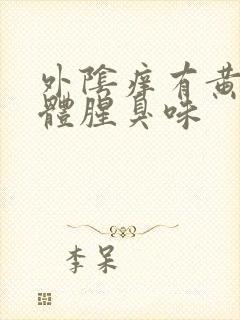 外陰痒有黄
體腥臭味
李呆